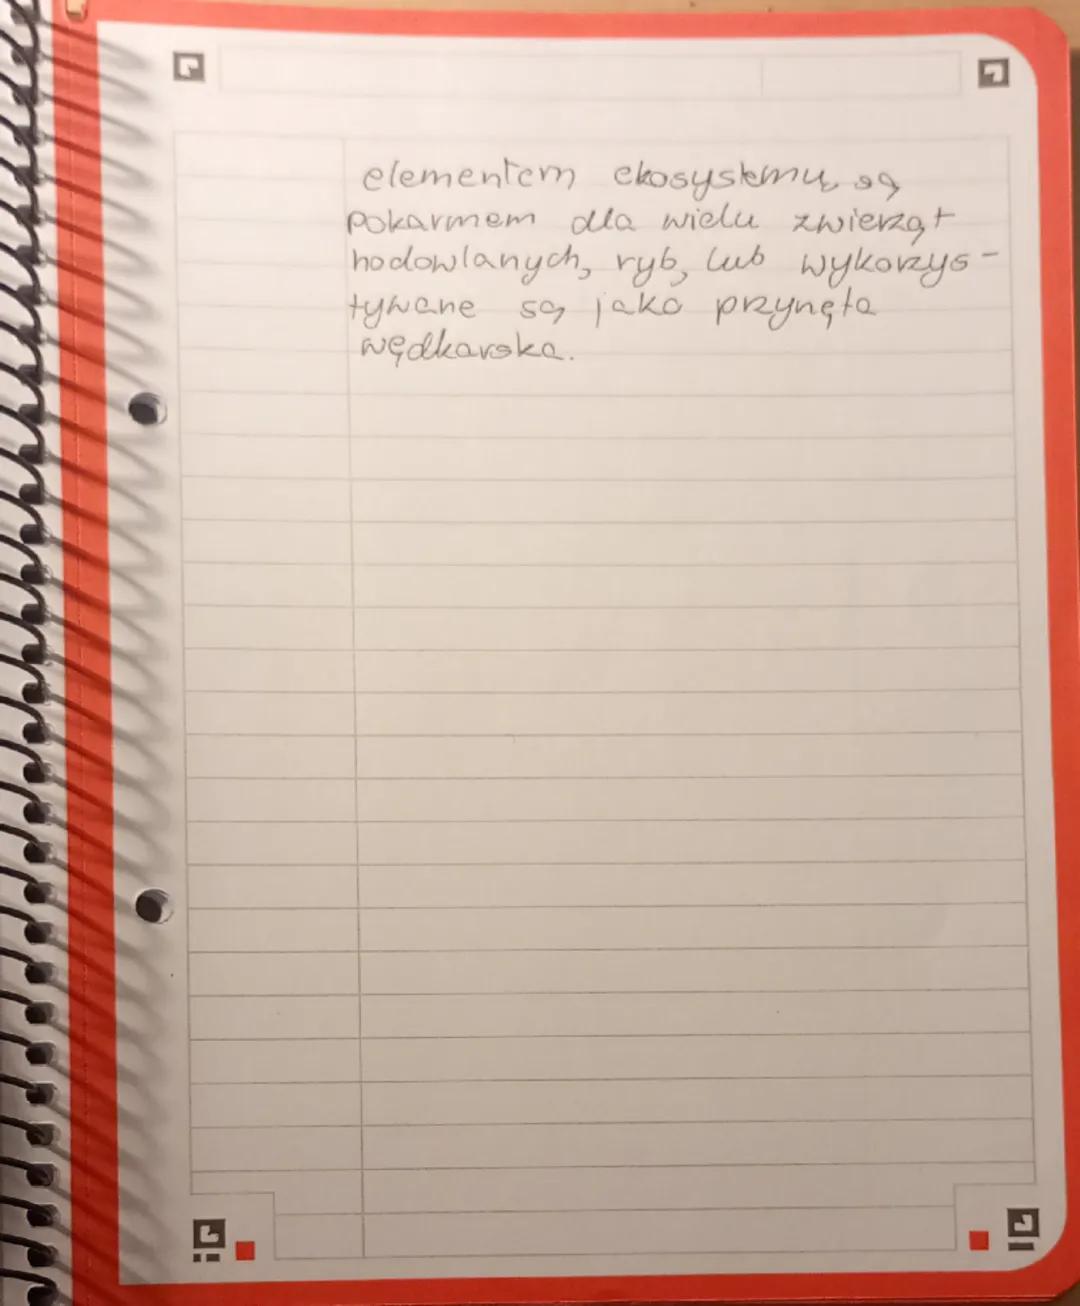 elementem ekosystemu, są
pokarmem dla wielu zwierząt
hodowlanych, ryb, lub wykorzys-
tywane są jako przynęta
wędkarska.